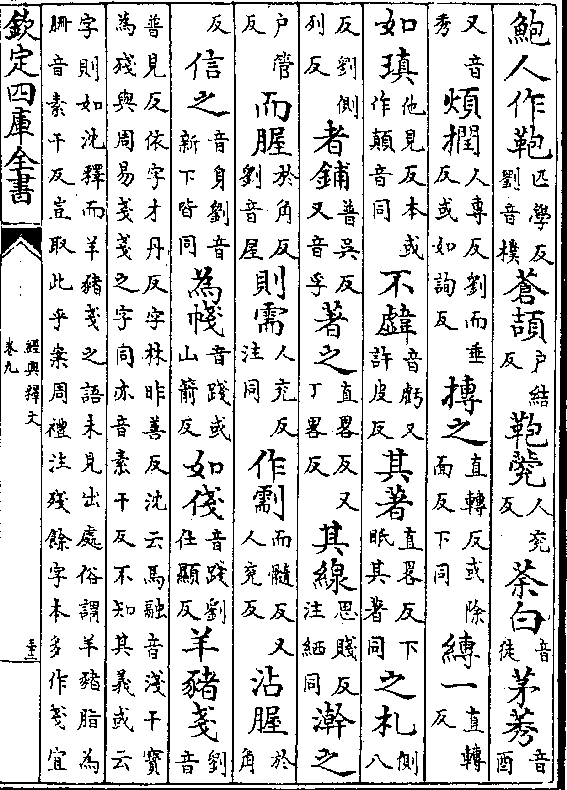 鮑人作鞄匹學反劉音樸蒼頡户結反鞄㼱人兖反荼白音徒茅莠音酉
又音秀煩撋人專反劉而垂反或如詢反摶之直轉反或除面反下同縛一直轉反
如瑱他見反本或作顛音同不音虧又許皮反其著直畧反下眂其著同之札側八
反劉側列反者鋪普吳反又音孚著之直畧反又丁畧反其線思賤反注絤同澣之
户管反而腛於角反劉音屋則需人兖反注同作㓴而髓反又人兖反沾腛於角
反信之音身劉音新下皆同為帴音踐或山箭反如俴音踐劉仕顯反羊豬戔劉音
普見反依字才丹反字林昨善反沈云馬融音淺干寳
為殘與周易戔戔之字同亦音素干反不知其義或云
字則如沈釋而羊豬戔之語未見出處俗謂羊豬脂為
䏝音素干反豈取此乎案周禮注殘餘字本多作戔宜
欽定四庫全書
經典釋文
卷九